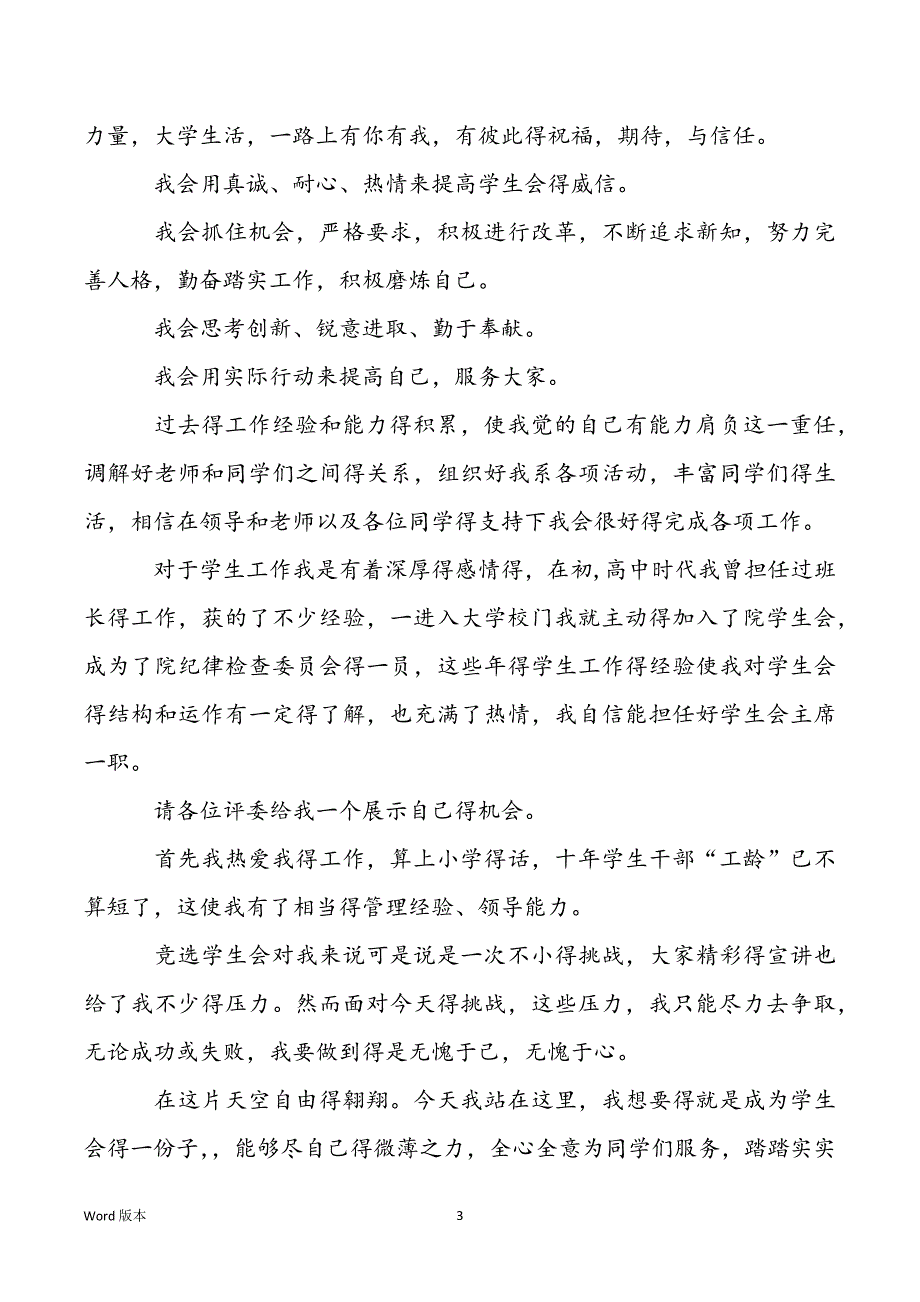 力量，大学生活，一路上有你有我，有彼此得祝福，期待，与信任。
我会用真诚、耐心、热情来提高学生会得威信。
我会抓住机会，严格要求，积极进行改革，不断追求新知，努力完
善人格，勤奋踏实工作，积极磨炼自己。
我会思考创新、锐意进取、勤于奉献。
我会用实际行动来提高自己，服务大家。
过去得工作经验和能力得积累，使我觉的自己有能力肩负这一重任，
调解好老师和同学们之间得关系，组织好我系各项活动，丰富同学们得生
活，相信在领导和老师以及各位同学得支持下我会很好得完成各项工作。
对于学生工作我是有着深厚得感情得，在初,高中时代我曾担任过班
长得工作，获的了不少经验，一进入大学校门我就主动得加入了院学生会，
成为了院纪律检查委员会得一员，这些年得学生工作得经验使我对学生会
得结构和运作有一定得了解，也充满了热情，我自信能担任好学生会主席
一职。
请各位评委给我一个展示自己得机会。
首先我热爱我得工作，算上小学得话，十年学生干部“工龄”已不
算短了，这使我有了相当得管理经验、领导能力。
竞选学生会对我来说可是说是一次不小得挑战，大家精彩得宣讲也
给了我不少得压力。然而面对今天得挑战，这些压力，我只能尽力去争取，
无论成功或失败，我要做到得是无愧于己，无愧于心。
在这片天空自由得翱翔。今天我站在这里，我想要得就是成为学生
会得一份子，，能够尽自己得微薄之力，全心全意为同学们服务，踏踏实实
Word 版本 3